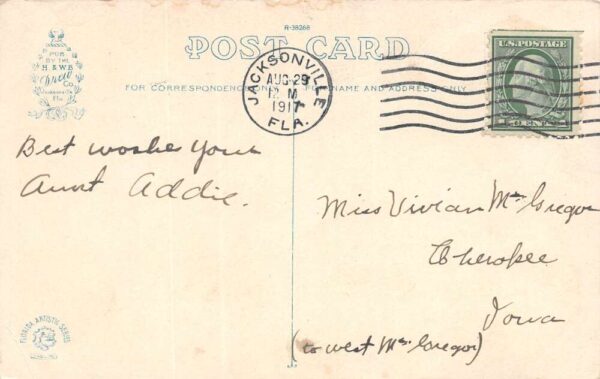 R-38268
POST CARD
PUB.
BY THE
H. & W.B.
Drew
Co.
Jacksonville
Fla.
FOR CORRESPONDENCE
NAME AND ADDRESS ONLY
JACKSONVILLE
AUG 29
12 M
1917
FLA.
U.S. POSTAGE
CENT
Best woshe your
Aunt Addie.
Miss Vivian McGregor
Cherokee
Iowa
(co West McGregor)
FLORIDA ARTISTIC SERIES